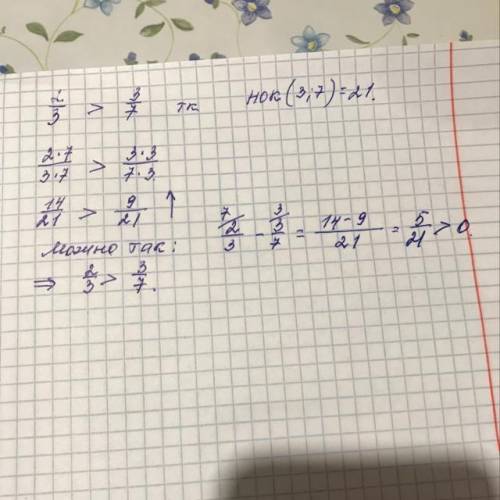 2/3 > 3/7 тк НОК(3;7)=21.
2·7/3·7 > 3·3/7·3
14/21 > 9/21 ↑
Можно так: 7/2/3 - 3/3/7 = 14-9/21 = 5/21 > 0.
⇒ 2/3 > 3/7.